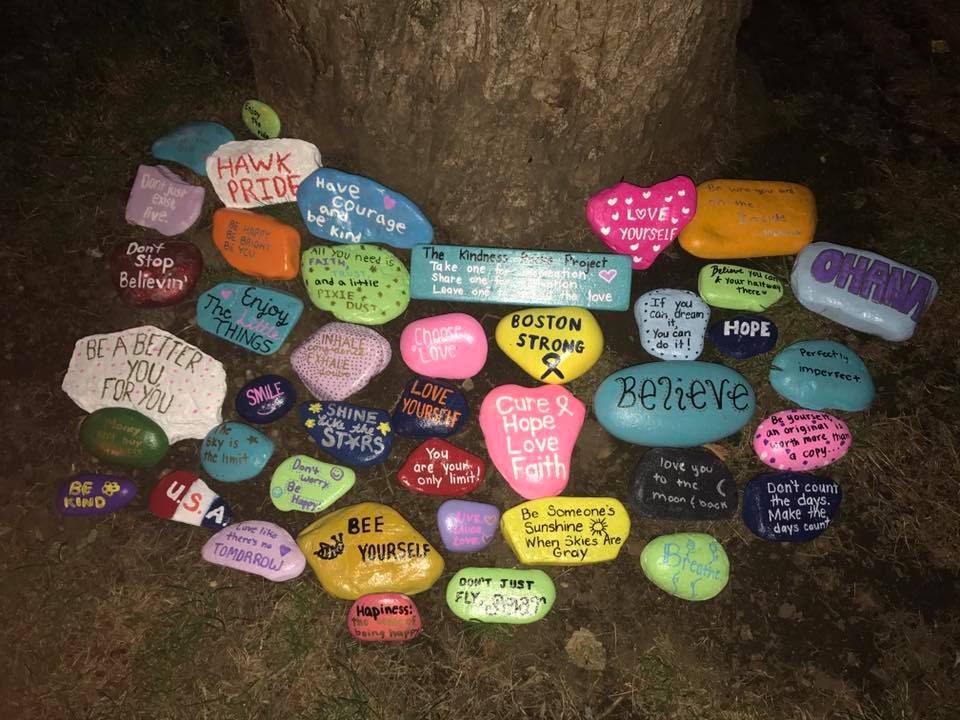 Enjoy
the
HAWK
PRIDE
Don't just
exist
live.
Have
Courage
and
be kind
LOVE
YOURSELF
Be who you are
on the
Inside
BE HAPPY
BE BRIGHT
BE YOU
Don't
Stop
Believin'
All you need is
FAITH,
TRUST
and a little
PIXIE
DUST
The Kindness Rocks Project
Take one for inspiration
Share one for
Leave one the love
Believe you can
& your halfway
there
OHANA
Enjoy
the Little
THINGS
If you
can dream
it,
You can
do it!
HOPE
INHALE
EXHALE
Choose
Love
BOSTON
STRONG
BE A BETTER
YOU
FOR YOU
SMILE
LOVE
YOURSELF
BELIEVE
Perfectly
imperfect
SHINE
like the
STARS
Cure
Hope
Love
Faith
Be yourself,
an original is
worth more than
a copy...
Money
can't buy
sky is
the limit
You
are your
only limit!
love you
to the
moon & back
Don't count
the days.
Make the
days count
BE
KIND
U.S.A
Don't
worry.
Be
Happy!
Love like
there's no
TOMORROW
BEE
YOURSELF
LIVE
Laugh
Love
Be Someone's
Sunshine
When Skies Are
Gray
Breathe
DON'T JUST
FLY,
Hapiness:
being happy